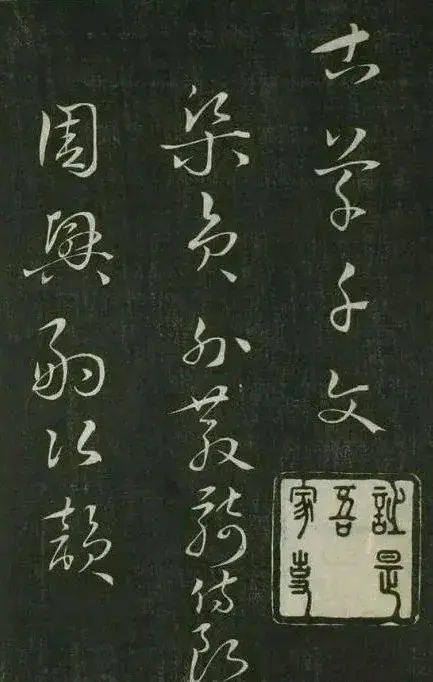 古草千文
梁員外散騎侍郎
周興嗣次韻
詩是
吾
家事